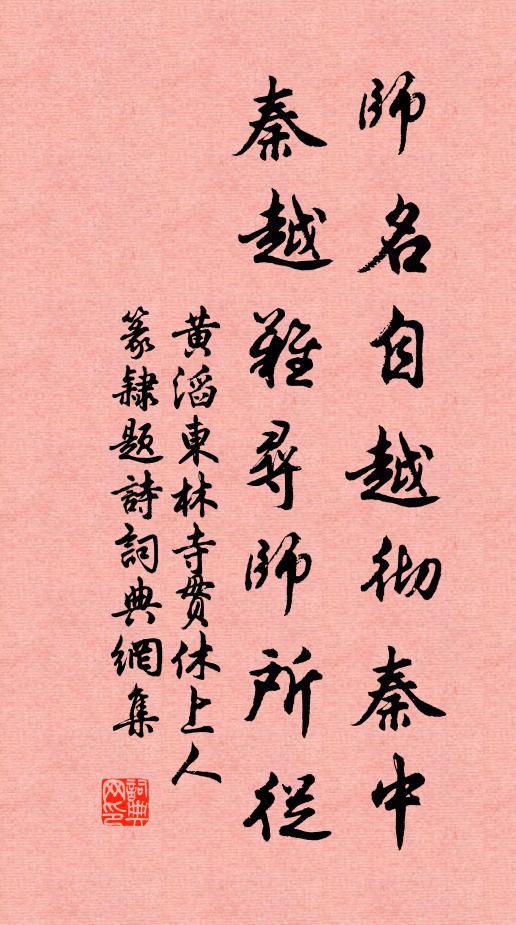 師名自越徹秦中
秦越難尋師所從
黃滔東林寺貫休上人
篆隸題詩詞典網集
詞典
网印